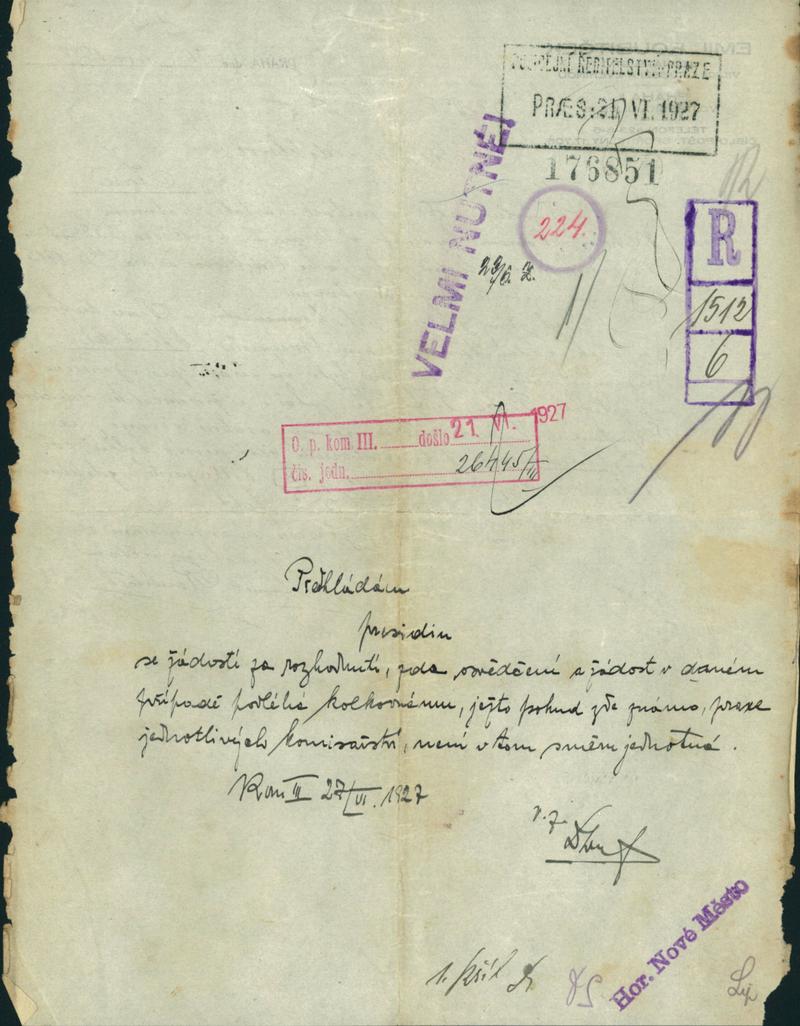 POLICEJNÍ ŘEDITELSTVÍ V PRAZE
PRÆS: 21. VI. 1927
176851
VELMI NUTNÉ!
224.
R
1512
6
O. p. kom. III. došlo 21. VI. 1927
čís. jedn. 26445/III
Předkládám
presidiu
se žádostí za rozhodnutí, zda osvědčení a žádost v daném
případě podléhá kolkovnému, ježto pokud zde známo, praxe
jednotlivých komisařství, není v tom směru jednotná.
Kom III 27/VI. 1927
Hor. Nové Město